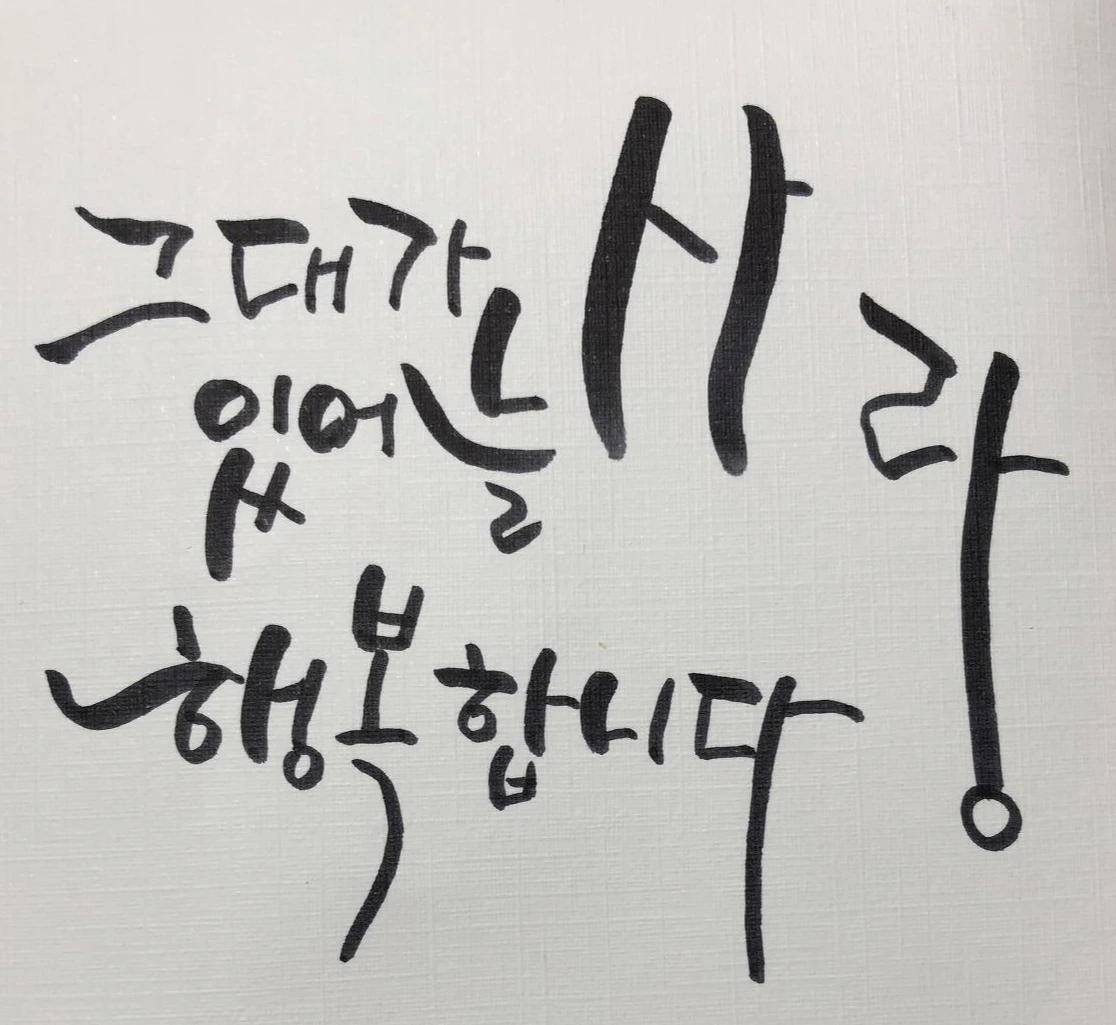 그대가
있어 늘
사랑
행복합니다